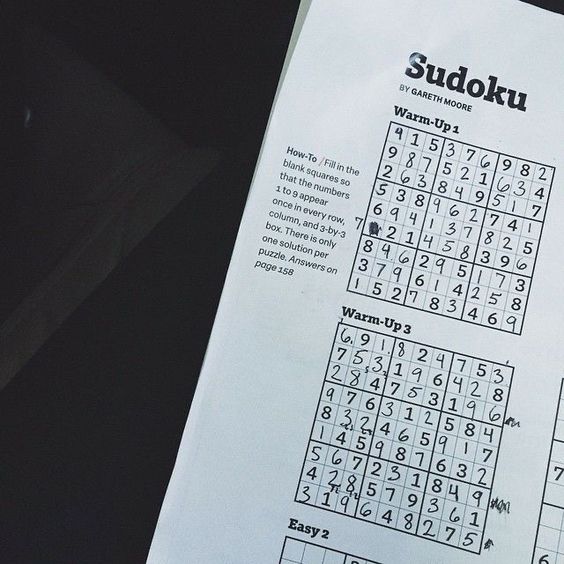 Sudoku
BY GARETH MOORE
How-To / Fill in the
blank squares so
that the numbers
1 to 9 appear
once in every row,
column, and 3-by-3
box. There is only
one solution per
puzzle. Answers on
page 158
Warm-Up 1
4 1 5 3 7 6 9 8 2
9 8 7 5 2 1 6 3 4
2 6 3 8 4 9 5 1 7
5 3 8 9 6 2 7 4 1
6 9 4 1 3 7 8 2 5
7 2 1 4 5 8 3 9 6
8 4 6 2 9 5 1 7 3
3 7 9 6 1 4 2 5 8
1 5 2 7 8 3 4 6 9
Warm-Up 3
6 9 1 8 2 4 7 5 3
7 5 3 1 9 6 4 2 8
2 8 4 7 5 3 1 9 6
9 7 6 3 1 2 5 8 4
8 3 2 4 6 5 9 1 7
1 4 5 9 8 7 6 3 2
5 6 7 2 3 1 8 4 9
4 2 8 5 7 9 3 6 1
3 1 9 6 4 8 2 7 5
Easy 2
7
6